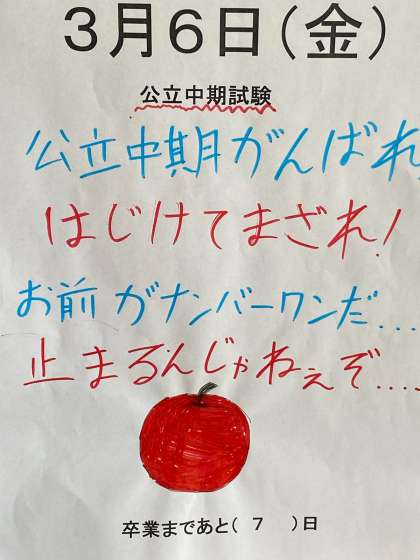 3月6日(金)
公立中期試験
公立中期がんばれ
はじけてまざれ!
お前がナンバーワンだ....
止まるんじゃねぇぞ....
卒業まであと( 7 )日